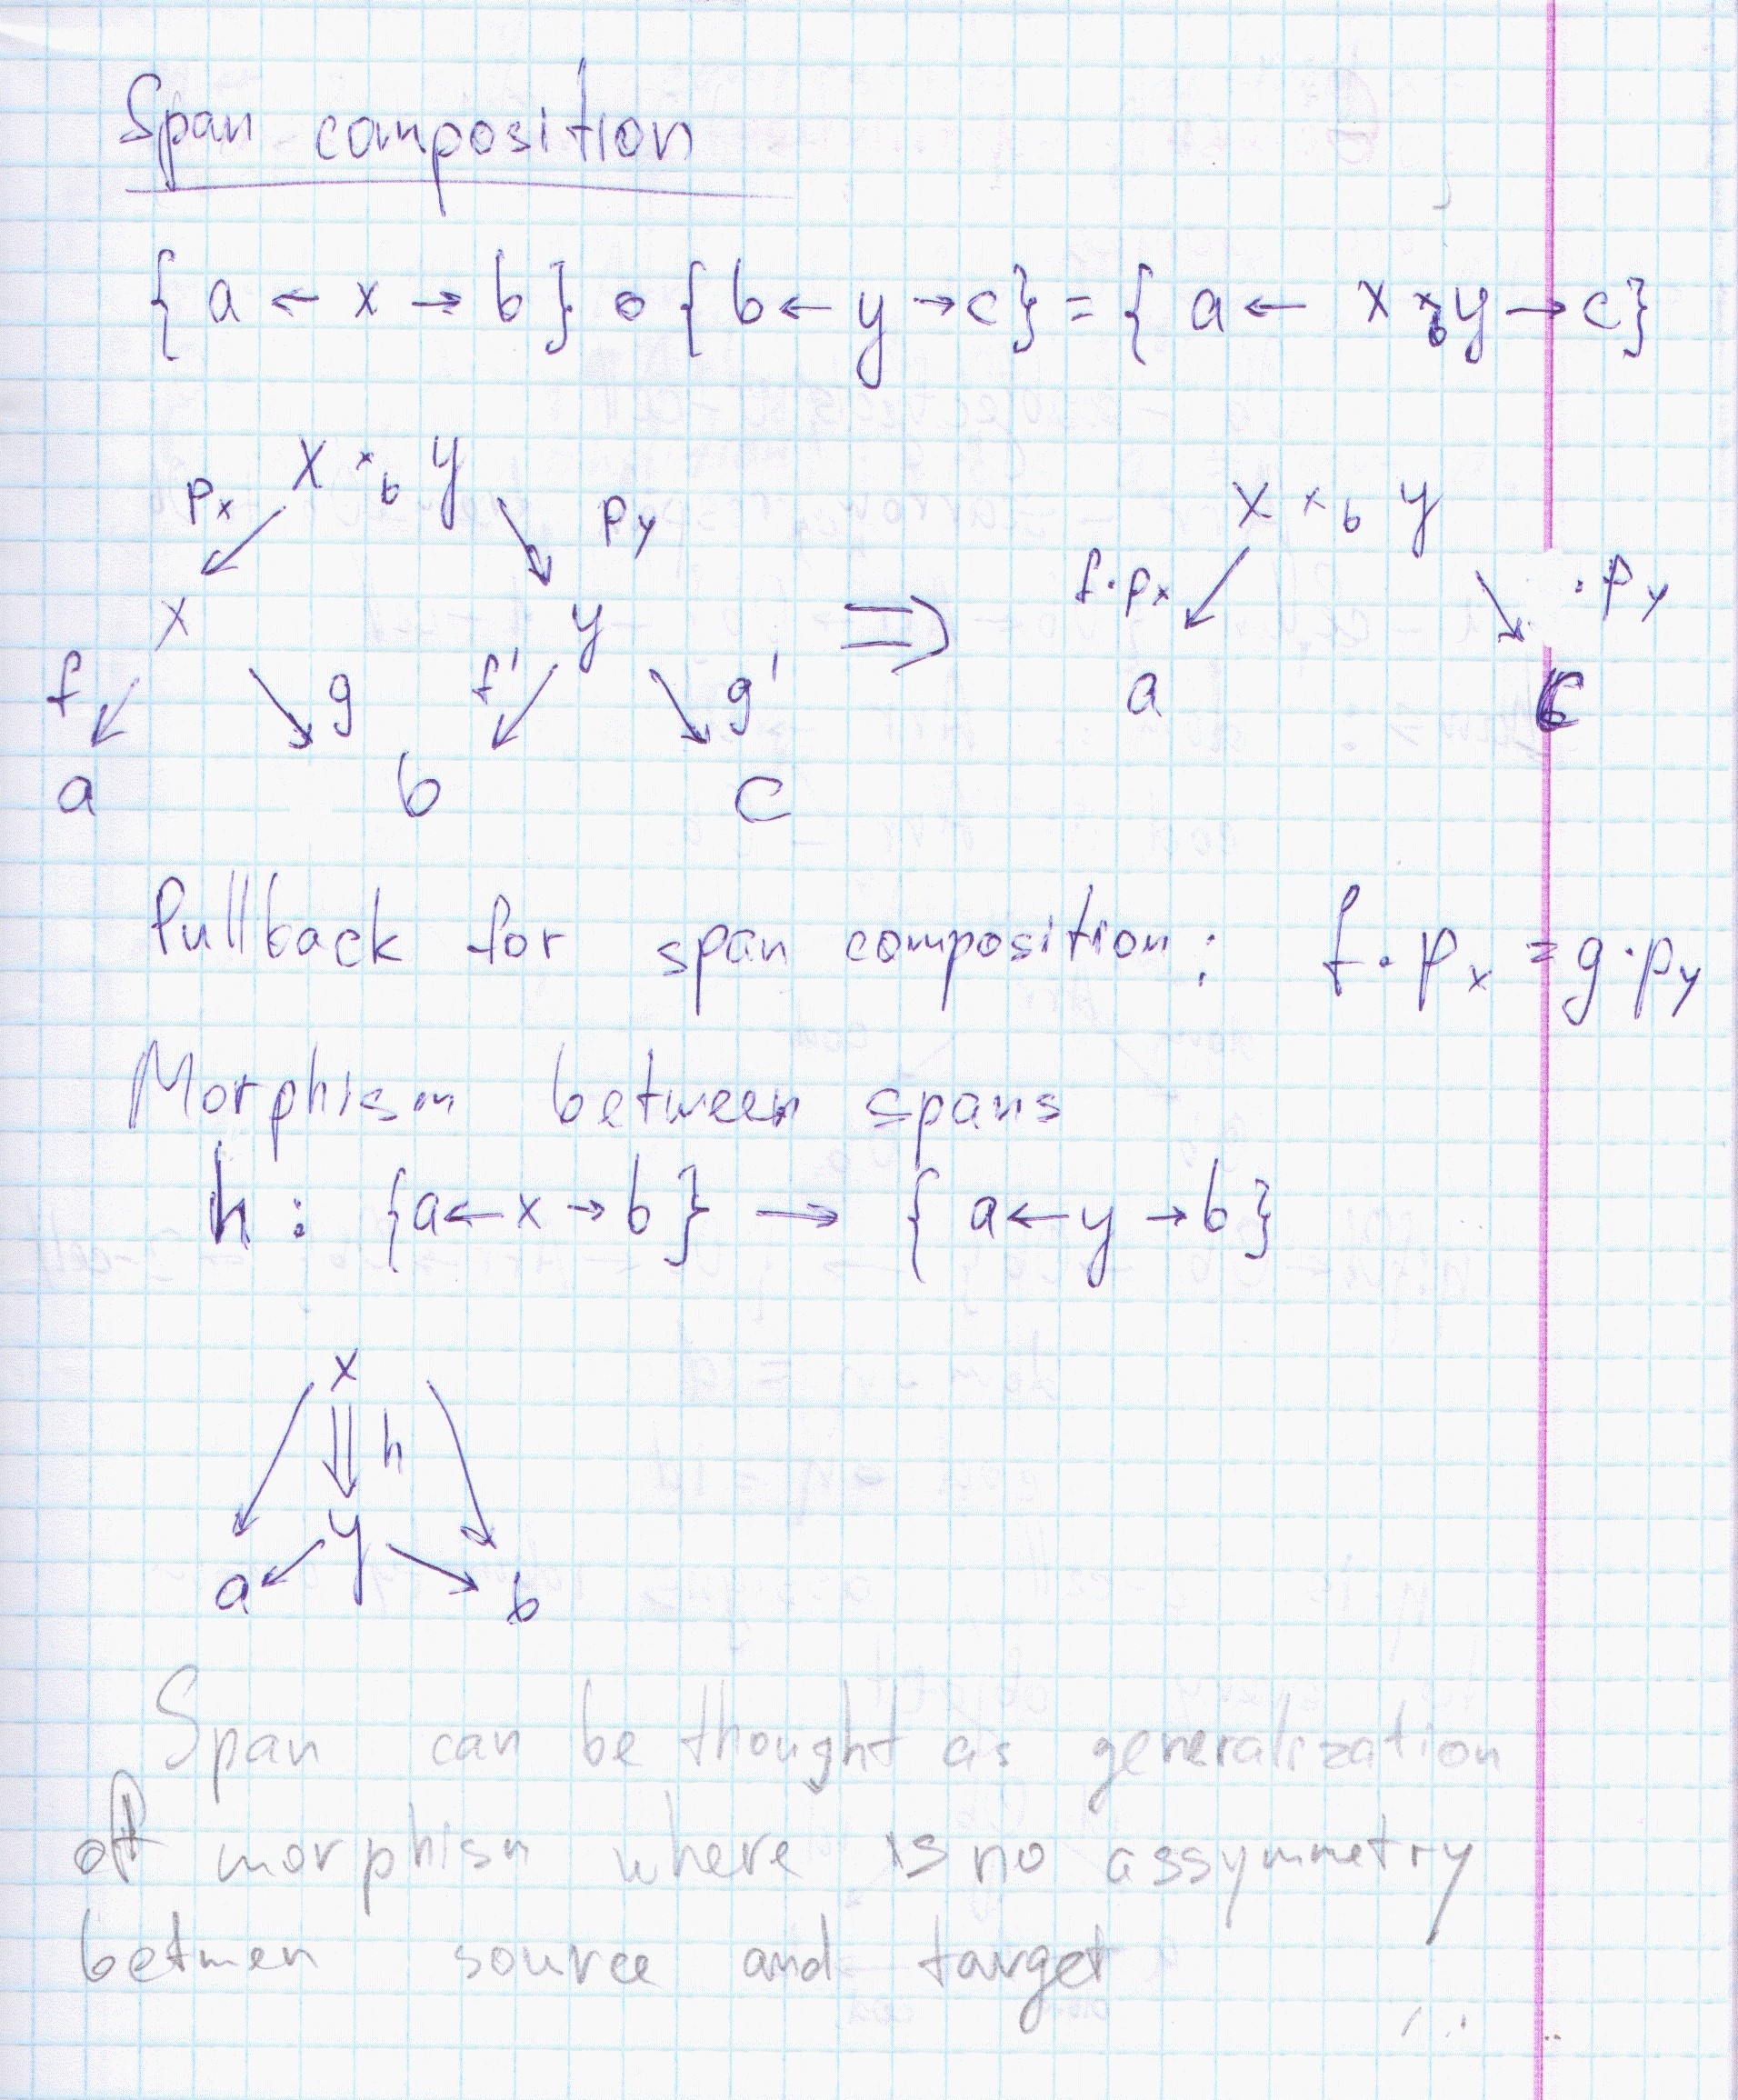 Span composition
{ a ← x → b } ∘ { b ← y → c } = { a ← x ×_b y → c }
x ×_b y
p_x p_y
x y
f g f' g'
a b c
⇒
x ×_b y
f·p_x ·p_y
a c
Pullback for span composition: f·p_x = g·p_y
Morphism between spans
h : {a ← x → b} → { a ← y → b}
x
h
y
a b
Span can be thought as generalization
of morphism where is no assymmetry
between source and target